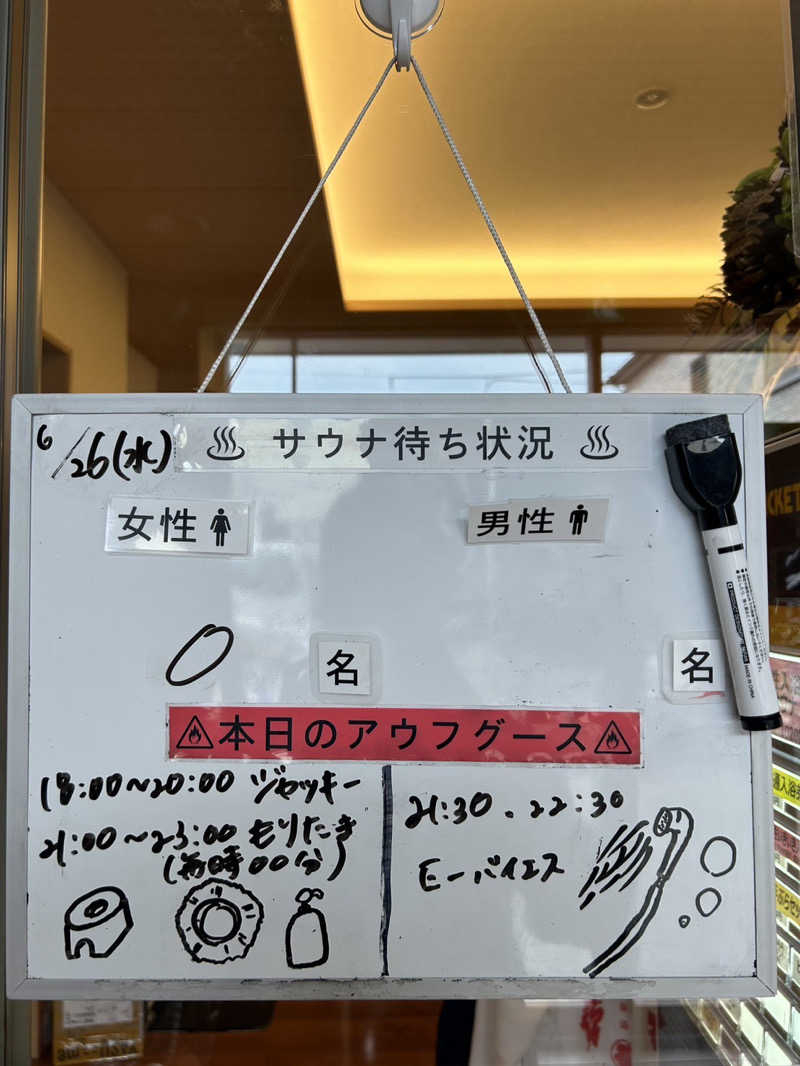 6/26(水) サウナ待ち状況
女性
男性
0 名
名
本日のアウフグース
18:00~20:00 ジャッキー
21:00~23:00 もりたき
(毎時00分)
21:30、22:30
E-バイエス